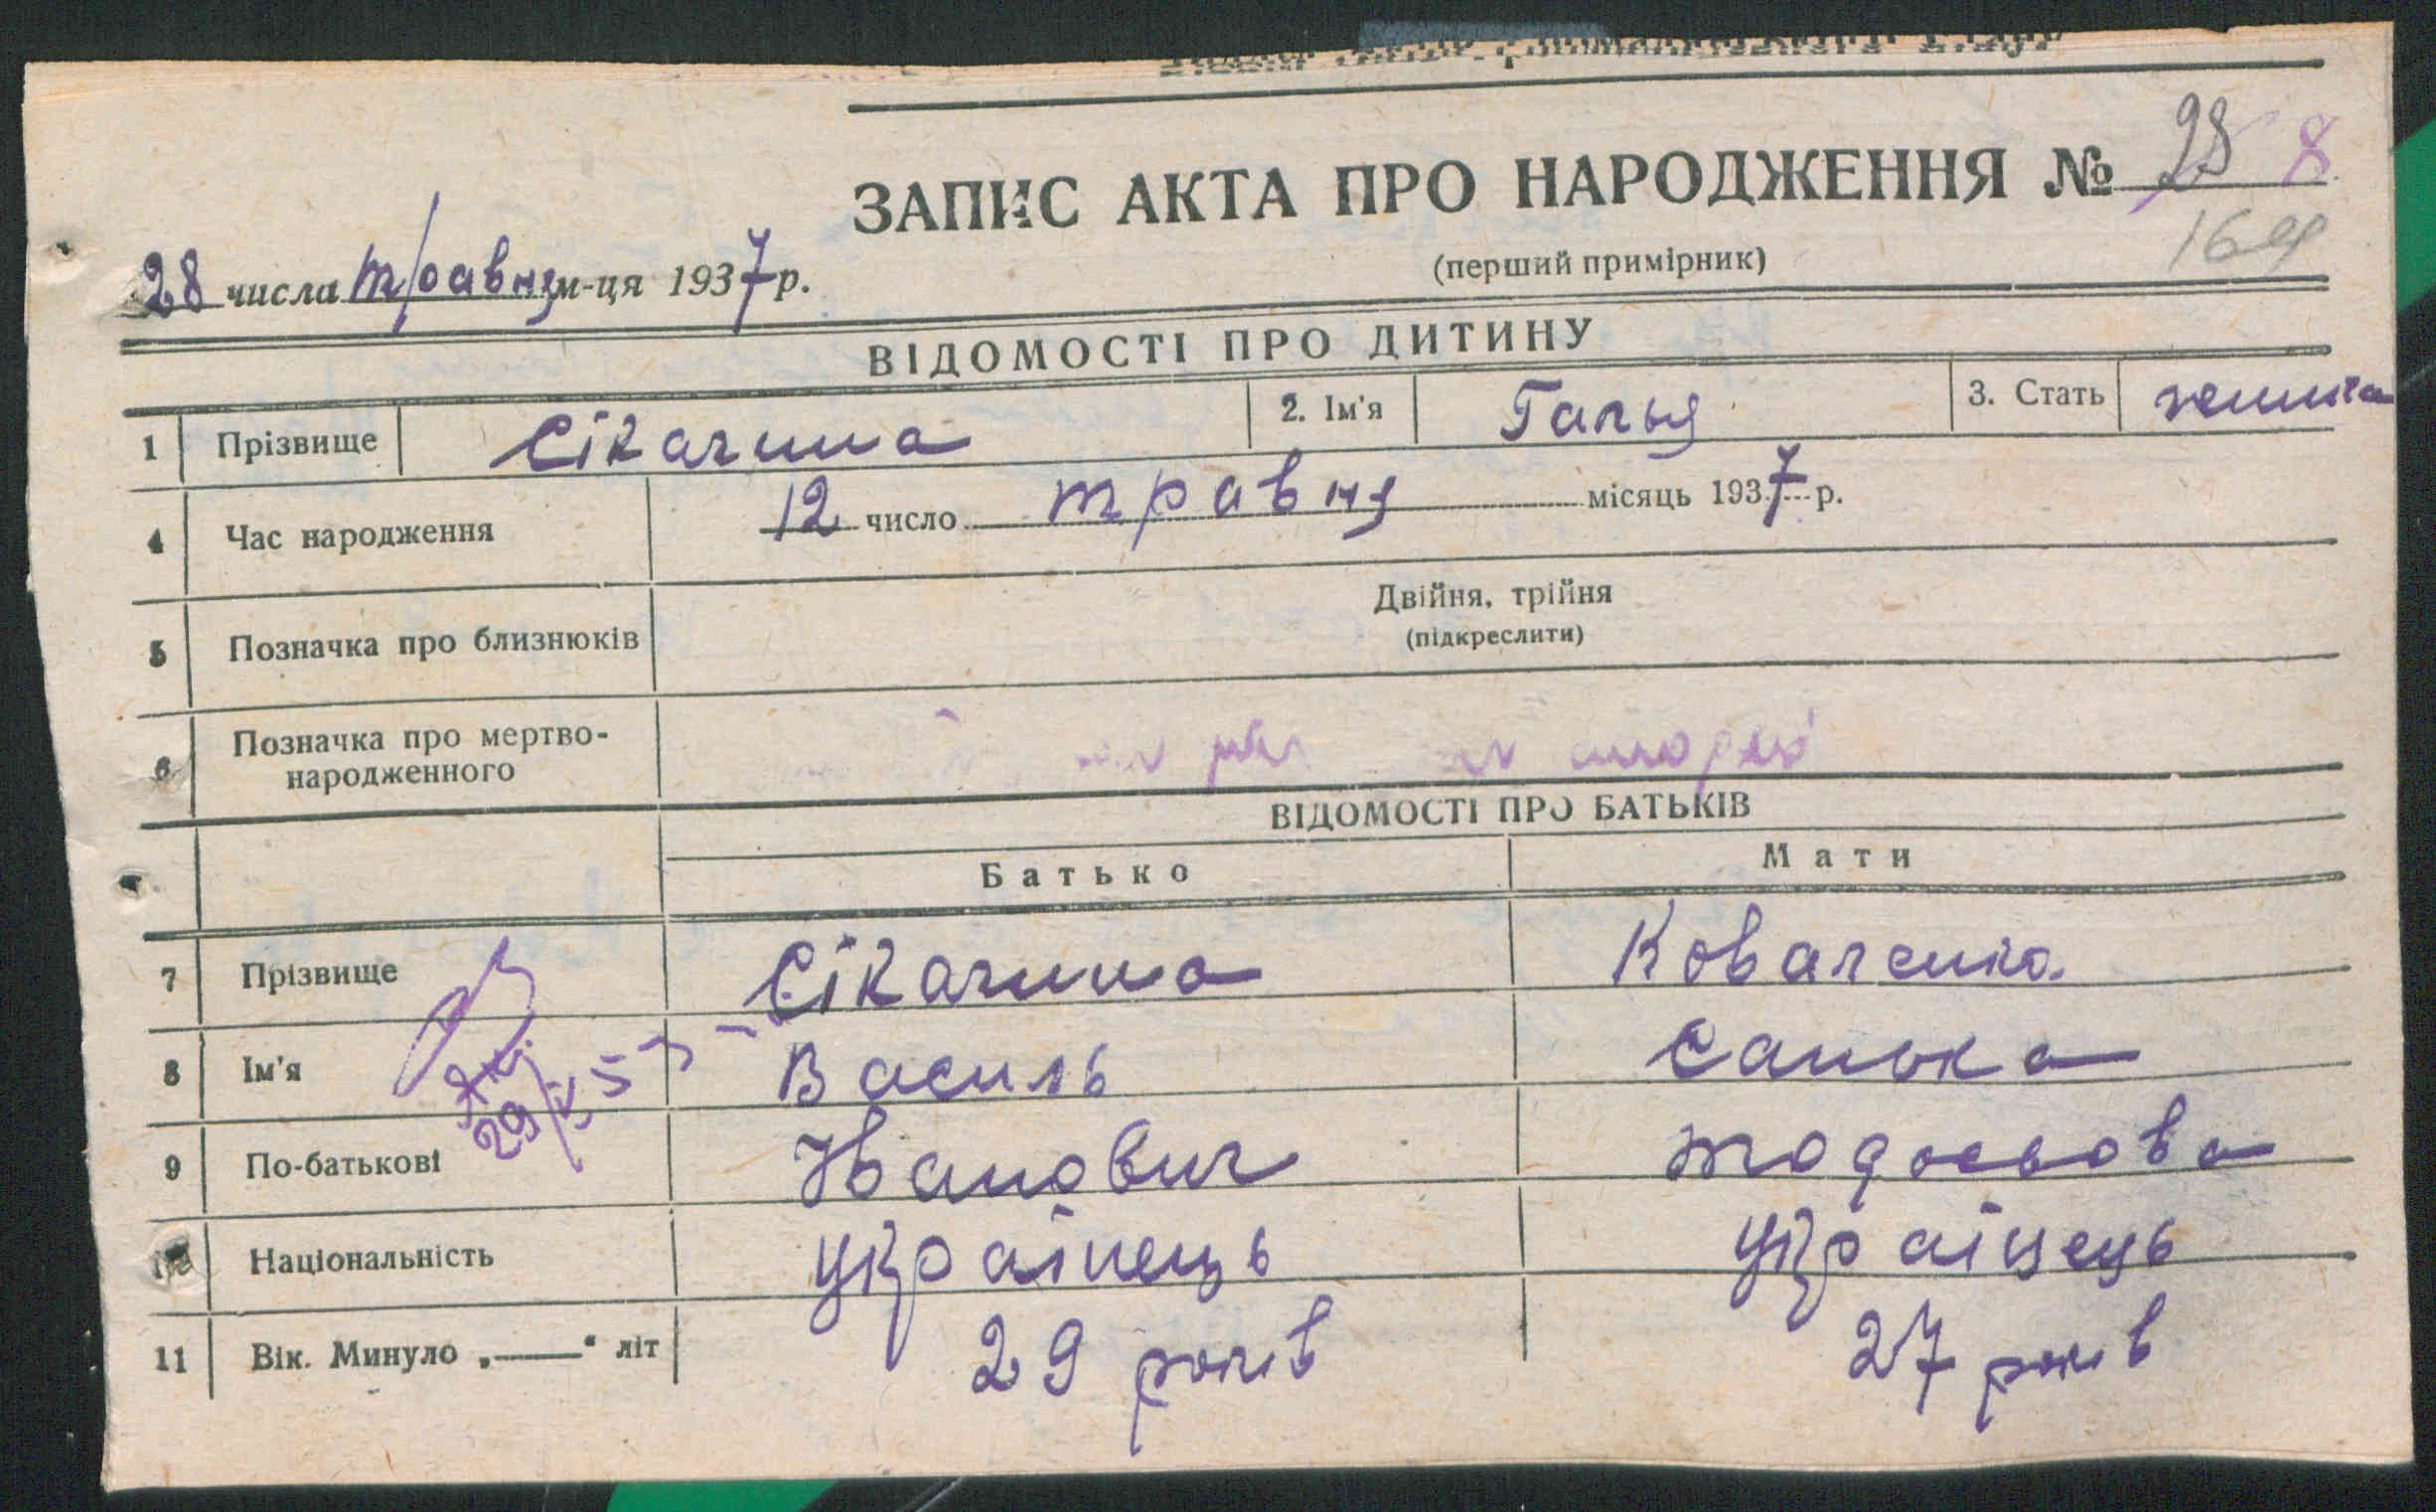 ЗАПИС АКТА ПРО НАРОДЖЕННЯ № 28 8
(перший примірник)
169
28 числа травня м-ця 1937 р.
ВІДОМОСТІ ПРО ДИТИНУ
1 Прізвище Сікачина 2. Ім'я Галья 3. Стать
4 Час народження 12 число травня місяць 1937 р.
5 Позначка про близнюків Двійня, трійня
(підкреслити)
6 Позначка про мертво-
народженного
ВІДОМОСТІ ПРО БАТЬКІВ
Батько Мати
7 Прізвище Сікачина
8 Ім'я Василь Санька
9 По-батькові Іванович Тодосьова
Національність українець українець
11 Вік. Минуло „——“ літ 29 років 27 років